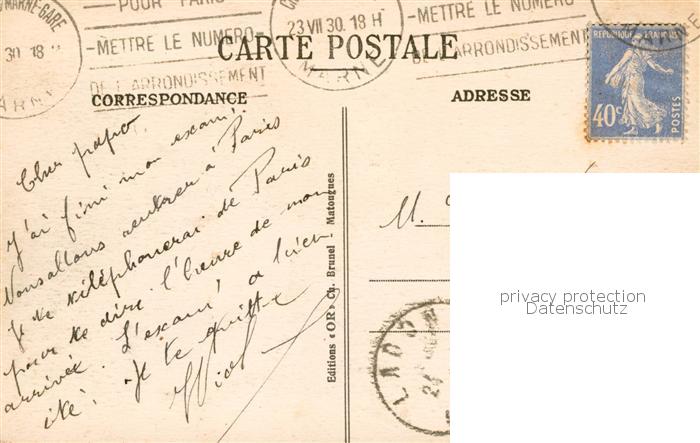 MARNE-GARE
30 18
POUR PARIS
METTRE LE NUMERO
DE L'ARRONDISSEMENT
23 VII 30. 18 H
MARNE
METTRE LE NUMERO
DE L'ARRONDISSEMENT
REPUBLIQUE FRANÇAISE
40c
POSTES
CARTE POSTALE
CORRESPONDANCE
ADRESSE
Cher papa,
J'ai fini mon exam.
Nous allons rentrer à Paris
Je te téléphonerai de Paris
pour te dire l'heure de mon
arrivée. L'exam' a bien
été. Je te quitte
Editions «OR», Ch. Brunel - Matougues
M.
privacy protection
Datenschutz
24